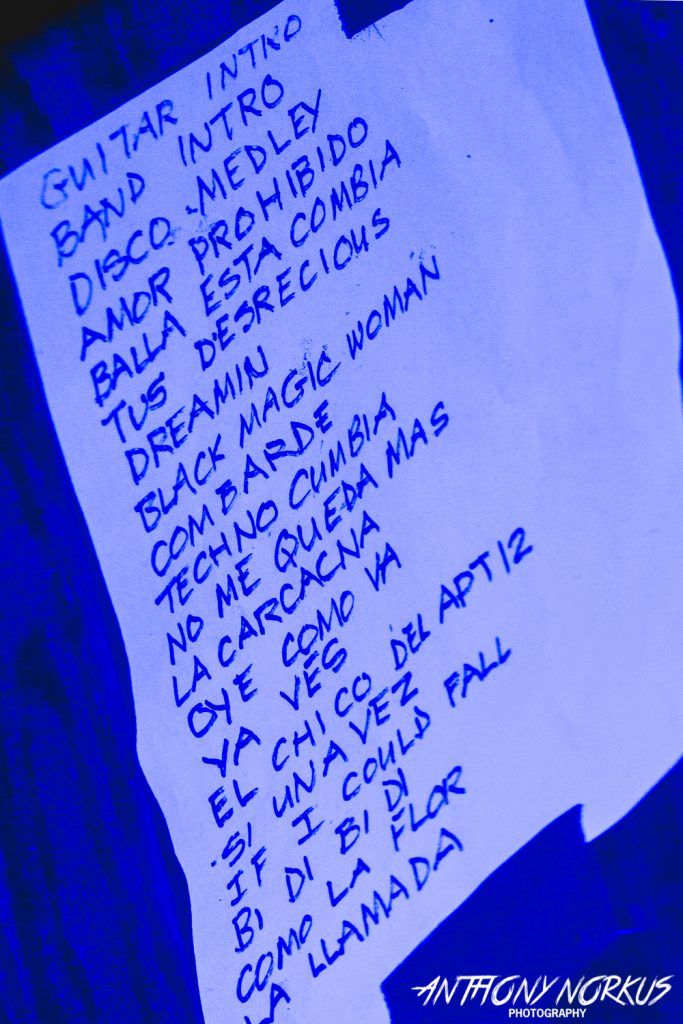 GUITAR INTRO
BAND INTRO
DISCO MEDLEY
AMOR PROHIBIDO
BALLA ESTA COMBIA
TUS DESRECIOUS
DREAMIN
BLACK MAGIC WOMAN
COMBARDE
TECHNO CUMBIA
NO ME QUEDA MAS
LA CARCACNA
OYE COMO VA
YA VES
EL CHICO DEL APT 12
SI UNA VEZ
IF I COULD FALL
BI DI BI DI
COMO LA FLOR
LA LLAMADA
ANTHONY NORKUS
PHOTOGRAPHY